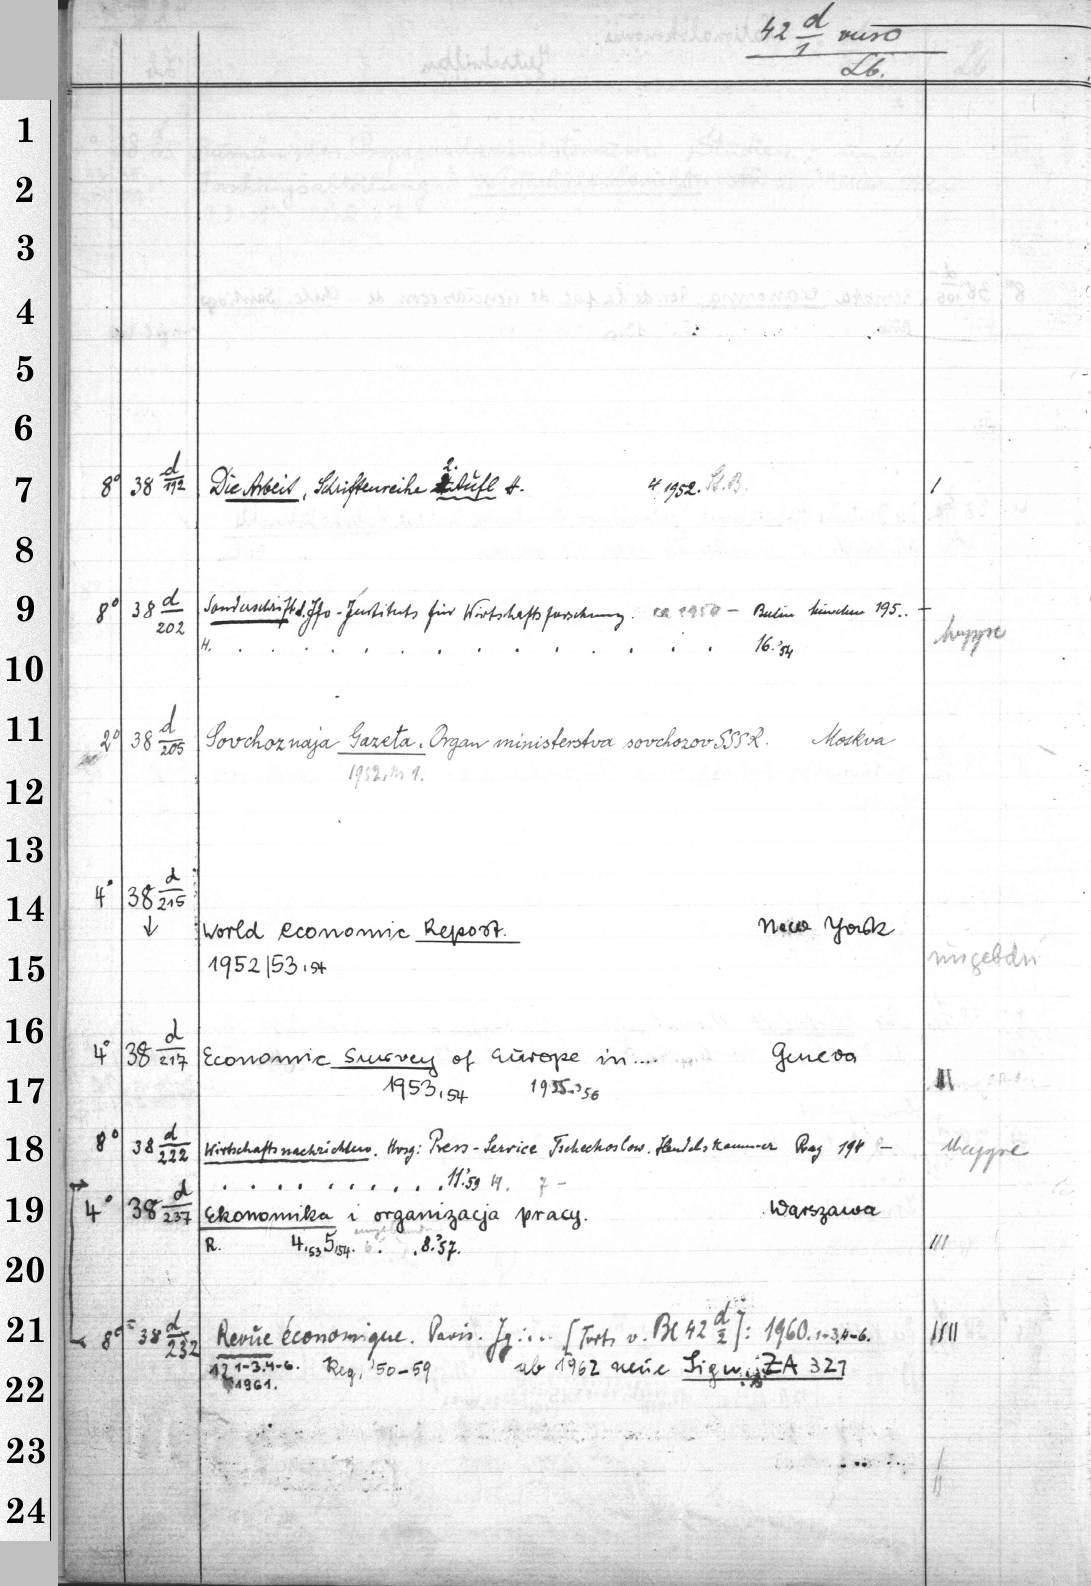 42 d/1 verso
Lb.
8° 38 d/192 Die Arbeit, Schriftenreihe 2. Aufl H. 4 1952. St.B. /
8° 38 d/202 Sonderschrift d. Ifo-Instituts für Wirtschaftsforschung. ca 1950 – Berlin München 195.. –
H. . . . . . . . . . . . . . . . 16.'54
2° 38 d/205 Sovchoznaja Gazeta. Organ ministerstva sovchozov SSSR. Moskva
1952, Nr 1.
4° 38 d/215
World economic Report. New York
1952/53,54
4° 38 d/217 Economic Survey of Europe in.... Geneva
1953,54 1955,56
8° 38 d/222 Wirtschaftsnachrichten. Hrsg: Press-Service Tschechoslow. Handelskammer Prag 194 –
. . . . . . . . . . 11'59 H. 7 –
4° 38 d/237 Ekonomika i organizacja pracy. Warszawa
R. 4,53 5,54. 6. .8.'57. ///
8° = 38 d/232 Revue économique. Paris. Jg:... [Forts v. Bl 42 d/2]: 1960.1-3,4-6. ////
12 1-3,4-6. Reg. '50-59 ab 1962 neue Sign.: ZA 327
1961.
1
2
3
4
5
6
7
8
9
10
11
12
13
14
15
16
17
18
19
20
21
22
23
24